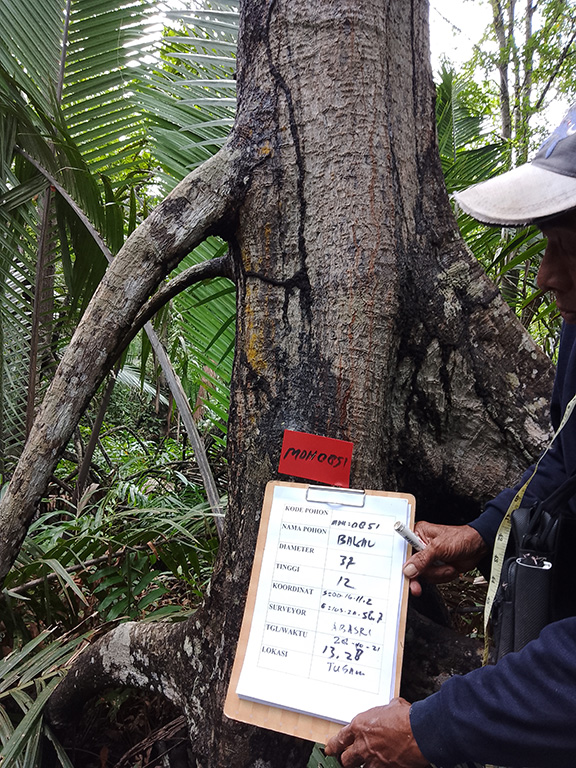 MDM0051
KODE POHON MDM0051
NAMA POHON BALAU
DIAMETER 37
TINGGI 12
KOORDINAT S=00.16.11.2
E=103.20.56.7
SURVEYOR
TGL/WAKTU
13.28
LOKASI TUGAM